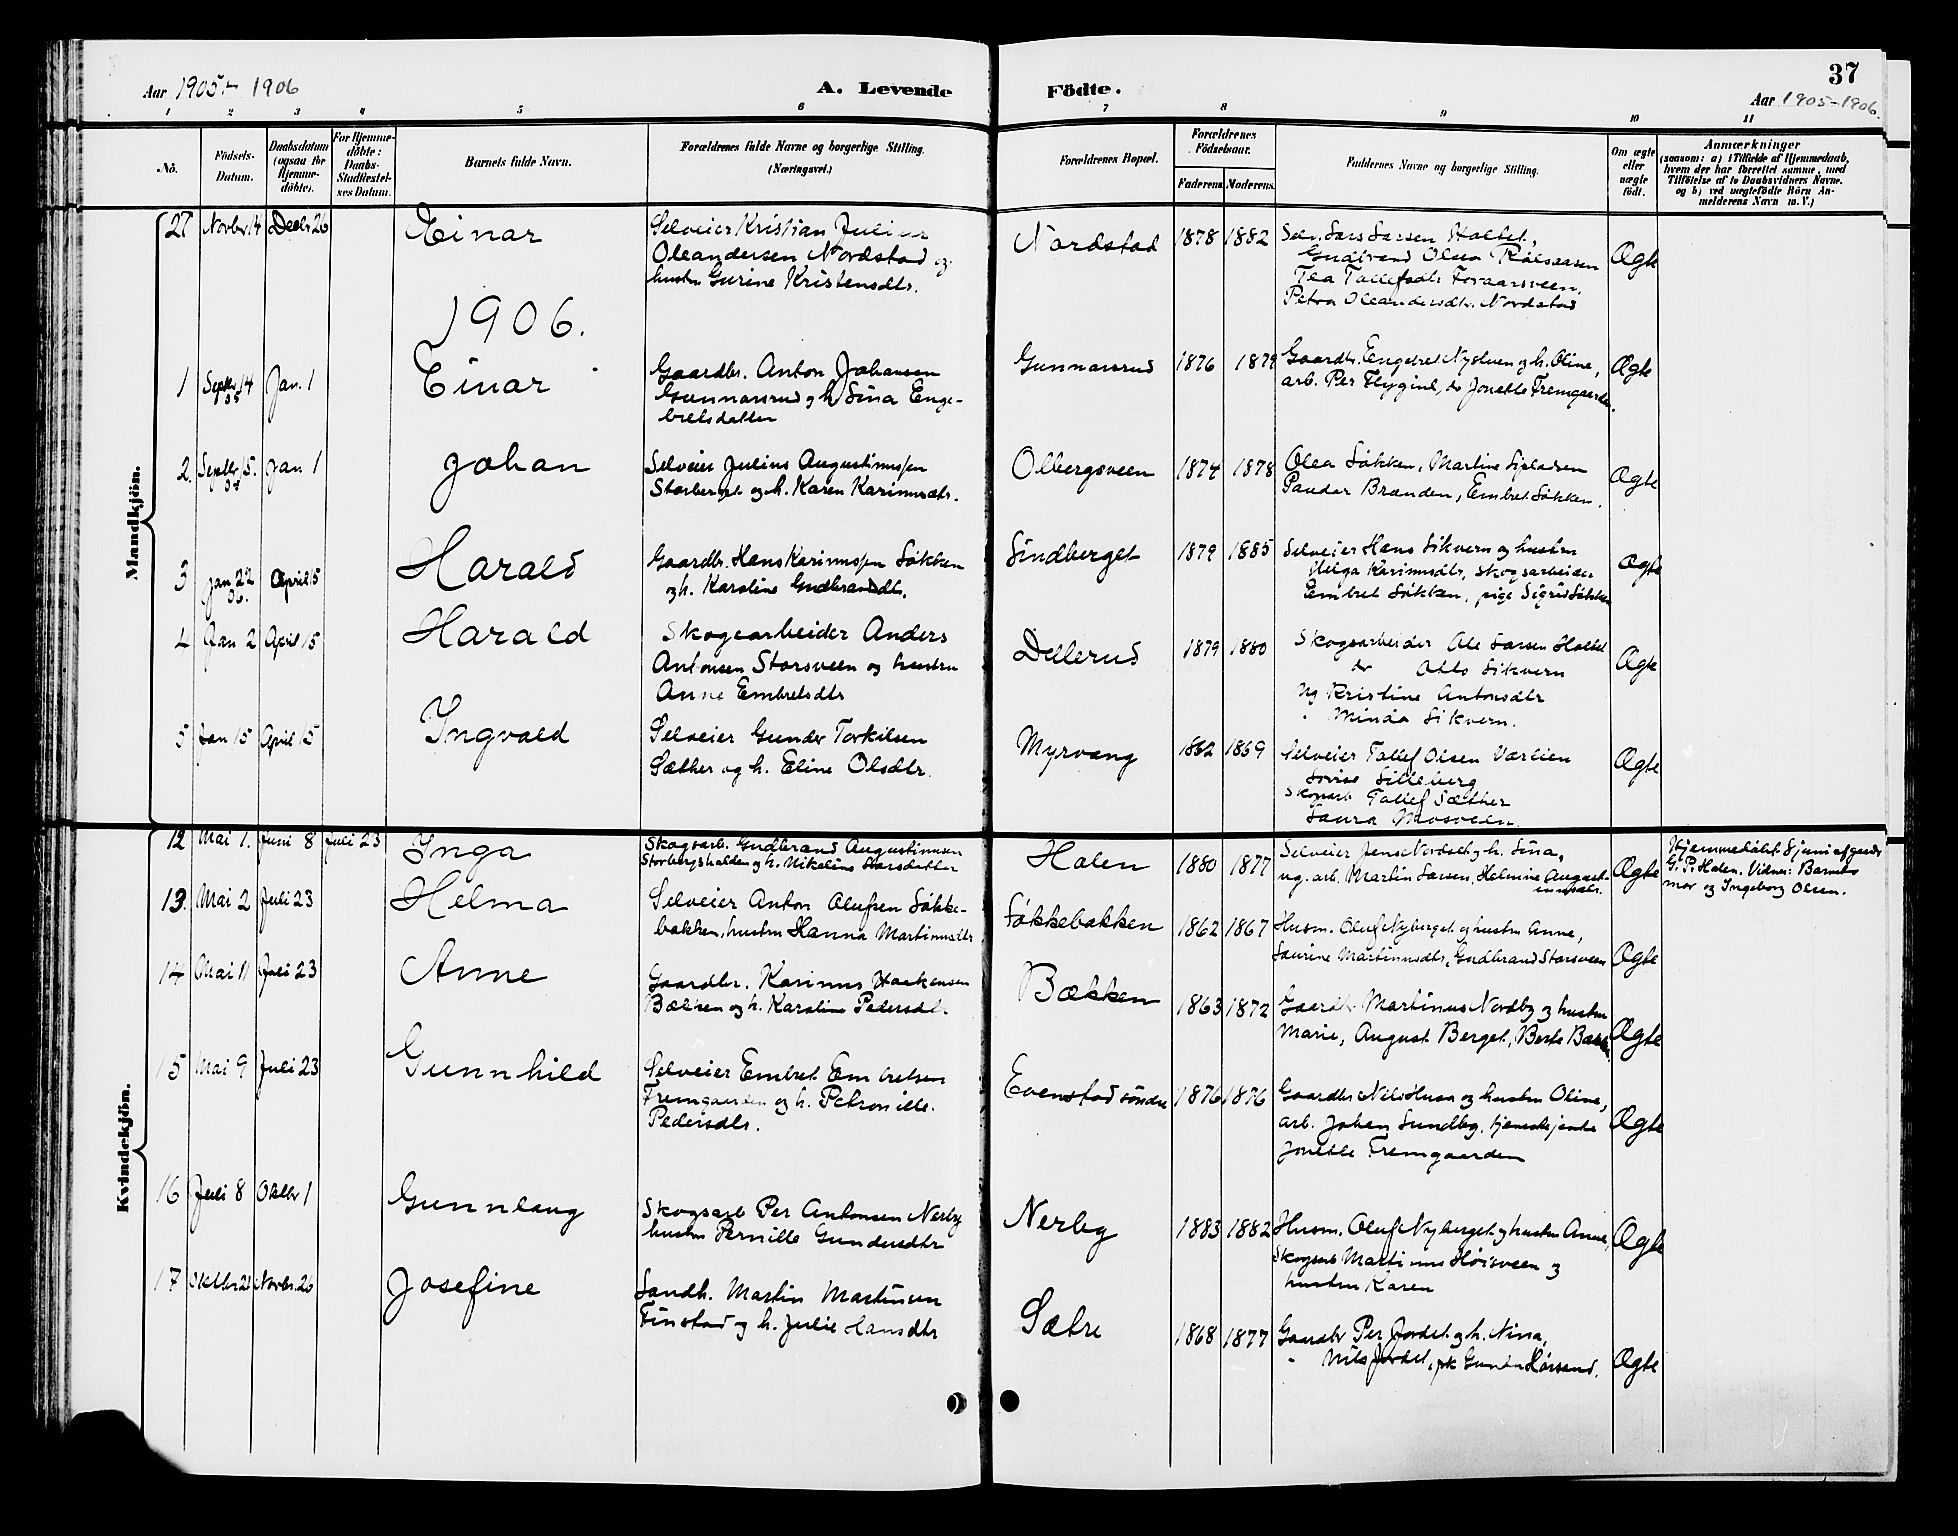 37
Aar 1905 - 1906
A. Levende Födte.
Aar 1905-1906.
1 2 3 4 5 6 7 8 9 10 11
No.
Födsels-Datum.
Daabsdatum (ogsaa for Hjemme-döbte).
For Hjemme-döbte: Daabs-Stadfæstel-ses Datum.
Barnets fulde Navn.
Forældrenes fulde Navne og borgerlige Stilling. (Næringsvei.)
Forældrenes Bopæl.
Forældrenes Födselsaar.
Faderens. Moderens.
Faddernes Navne og borgerlige Stilling.
Om ægte eller uægte födt.
Anmærkninger
(saasom: a) i Tilfælde af Hjemmedaab,
hvem der har forrettet samme, med
Tilföielse af to Daabsvidners Navne.
og b) ved uægtefödte Börn An-
melderens Navn m. V.)
Mandkjön.
27 Novbr 14 Decbr 26 Einar
Selveier Kristian Julius
Oleandersen Nordstad og
hustru Gurine Kristensdtr.
Nordstad 1878 1882
Selv. Lars Larsen Holtet,
Gudbrand Olsen
Tea
Petra Oleandersdtr. Nordstad
Ægte
1906.
1 Septbr 14 05 Jan. 1 Einar
Gaardbr. Anton Johansen
Gunnarsrud og h. Sina Enge-
bretsdatter
Gunnarsrud 1876 1879
Gaardbr. Engebret Nystuen og h. Oline,
arb. Per Flygind, do Jonette Fremgaarden.
Ægte
2. Septbr 15. 05 Jan 1 Johan
Selveier Julius Augustinussen
Storberget og h. Karen Karinusdtr.
Olbergsveen 1874 1878
Olea Løkken, Martine
Brænden, Embret Løkken.
Ægte
3 Jan 22 06. April 15 Harald
Gaardbr. Hans Karinussen Løkken
og h. Karoline Gudbrandsdtr.
Lindberget 1879 1885
Selveier Hans Sikvern og hustru
Helga Karinusdtr, skogsarbeider
Embret Løkken, pige Sigrid Løkken
Ægte
4 Jan 2 April 15 Harald
Skogsarbeider Anders
Antonsen Storsveen og hustru
Anne Embretsdtr
Dellerud 1879 1880
Skogsarbeider Ole Larsen Holtet
do Otto Sikvern
Ug Kristine Antonsdtr
" Minda Sikvern.
Ægte
5 Jan 15 April 15 Ingvald
Selveier Gunder Torkilsen
Sæther og h. Eline Olsdtr.
Myrvang 1862 1869
Selveier Tollef Olsen Værlien
Lovise Lilleberg
Skogsarb Tollef Sæther
Laura Mosveen.
Ægte
Kvindekjön.
12 Mai 1. Juni 8 Juli 23 Inga
Skogsarb. Gudbrand Augustinusen
Storbergshalden og h. Nikoline Larsdatter
Holen 1880 1877
Selveier Jens Nordset og h. Lina,
ug. arb. Martin Løveen, Helmine August-
inusdtr.
Ægte
Hjemmedøbt 8 juni af gaardbr
G. P. Holen. Vidner: Barnets
mor og Ingeborg Olsen.
13. Mai 2 Juli 23 Helma
Selveier Anton Olufsen Løkke-
bakken, hustru Hanna Martinusdtr
Løkkebakken 1862 1867
Husm. Oluf Nyberget og hustru Anne,
Laurine Martinusdtr, Gudbrand Storsveen
Ægte
14 Mai 11 Juli 23 Anne
Gaardbr. Karinus Haakensen
Bækken og h. Karoline Pedersdtr
Bækken 1863 1872
Gaardbr Martinus Nordby og hustru
Marie, August Berget, Berte Bækken
Ægte
15 Mai 9 Juli 23 Gunnhild
Selveier Embret Embretsen
Fremgaarden og h. Petronille
Pedersdtr.
Evenstad søndre 1876 1876
Gaardbr Nils Husa og hustru Oline,
arb. Johan Sundby, tjenestejente
Jonette Fremgaarden
Ægte
16 Juli 8 Oktbr 1 Gunnlaug
Skogsarb Per Antonsen Nerby
hustru Pernille Gundersdtr
Nerby 1883 1882
Husm. Oluf Nyberget og hustru Anne,
Skogsarb Martinus Høisveen og
hustru Karen
Ægte
17 Oktbr 21 Novbr. 26 Josefine
Landh. Martin Martinsen
Finstad og h. Julie Hansdtr
Sætre 1868 1877
Gaardbr Per Jordet og h. Nina,
" Nils Jordet, pk Gunda
Ægte